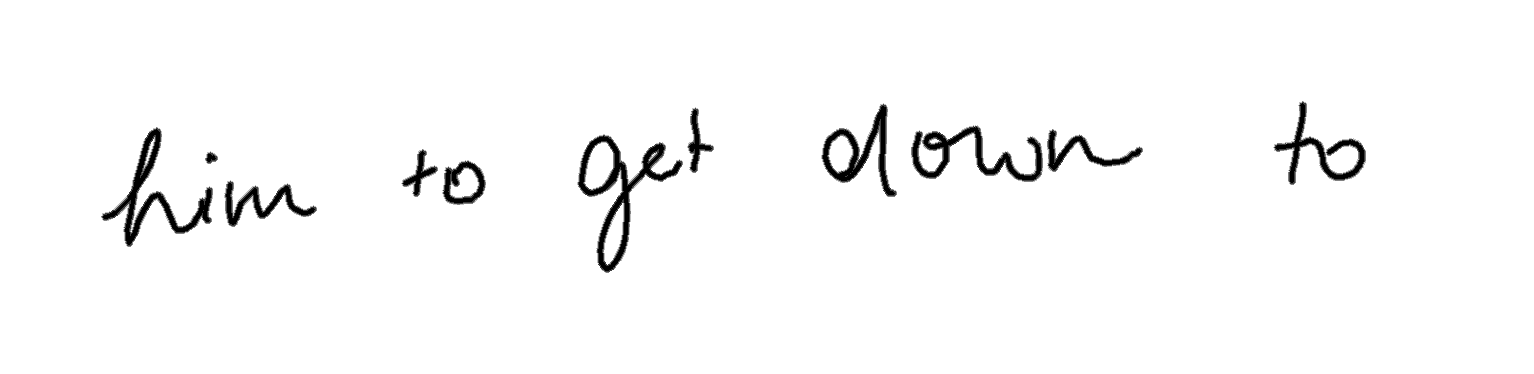 him to get down to